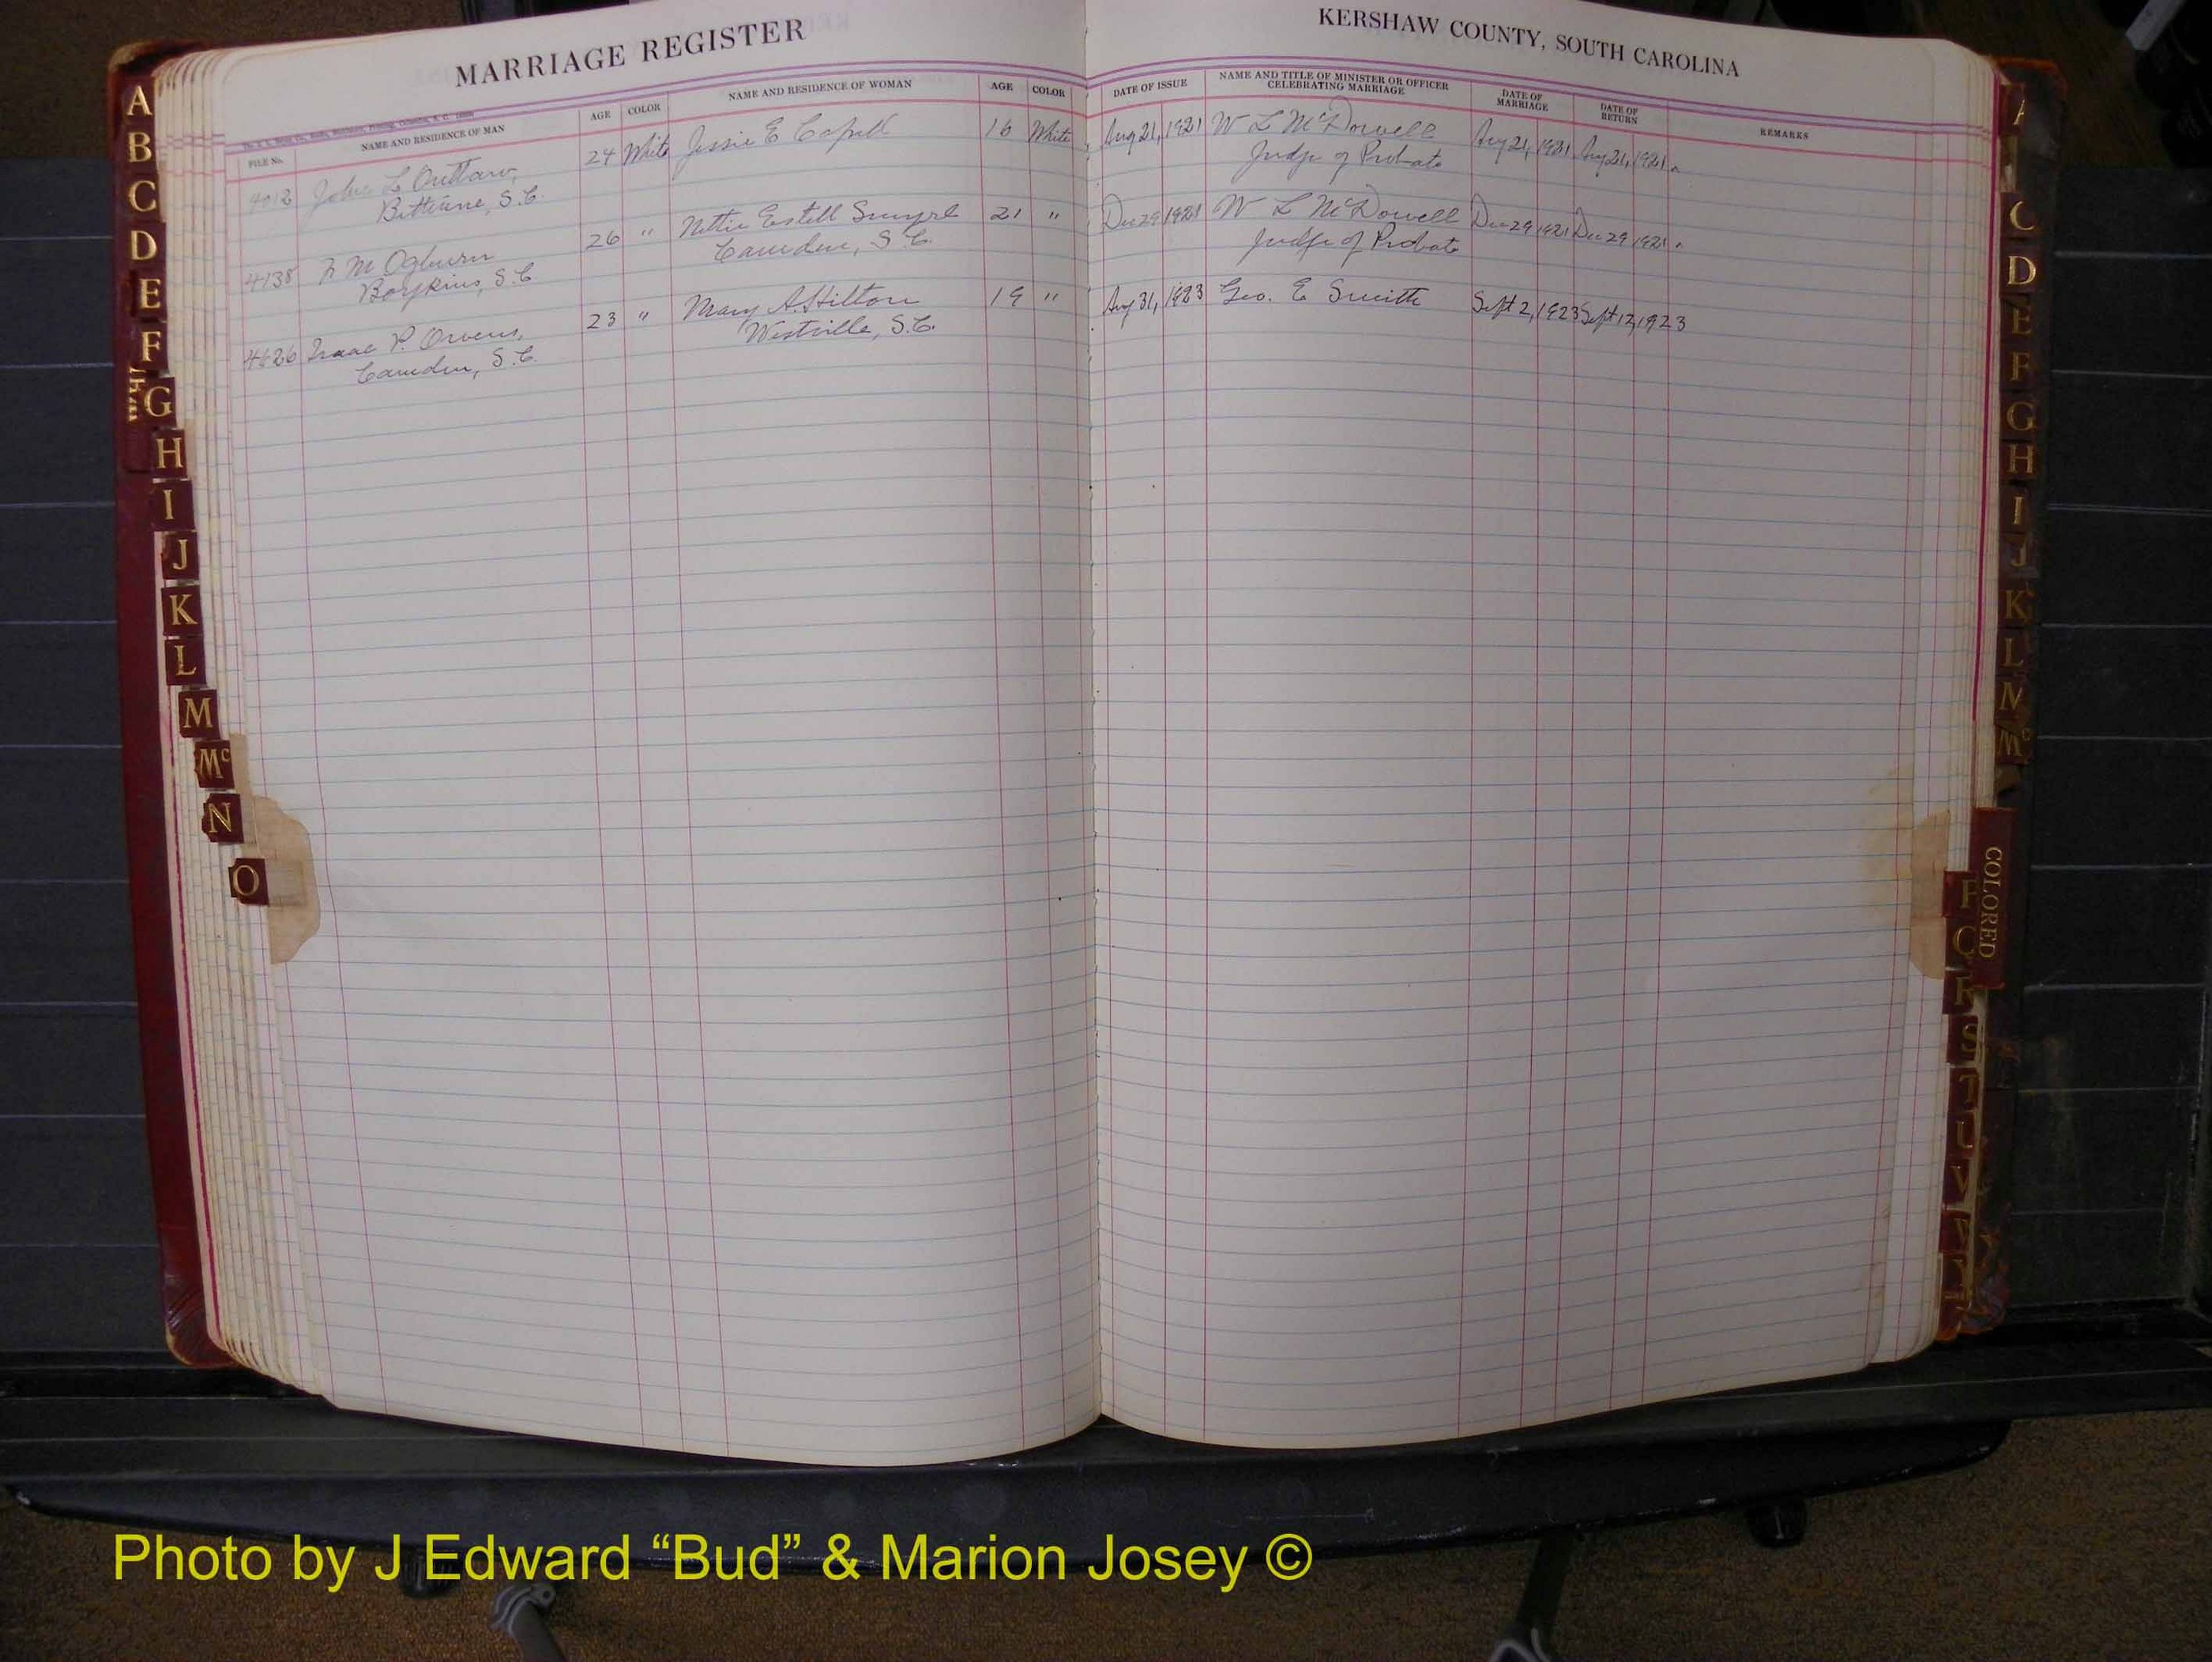 MARRIAGE REGISTER
KERSHAW COUNTY, SOUTH CAROLINA
FILE No. NAME AND RESIDENCE OF MAN AGE COLOR NAME AND RESIDENCE OF WOMAN AGE COLOR DATE OF ISSUE NAME AND TITLE OF MINISTER OR OFFICER CELEBRATING MARRIAGE DATE OF MARRIAGE DATE OF RETURN REMARKS
4012 John L Outlaw, 24 White Jessie E 16 White Aug 21, 1921 W L McDowell Aug 21, 1921 Aug 21, 1921
Bethune, S.C. Judge of Probate
4138 M Ogburn 26 " Nettie Estell 21 " Dec 29 1921 W L McDowell Dec 29 1921 Dec 29 1921
Boykins, S.C Camden, S.C. Judge of Probate
4626 Isaac P. Owens, 23 " Mary A. Hilton 19 " Aug 31, 1923 Geo. E Smith Sept 2, 1923 Sept 12, 1923
Camden, S.C. Westville, S.C.
A
B
C
D
E
F
G
H
I
J
K
L
M
Mc
N
O
A
C
D
E
F
G
H
I
J
K
L
M
Mc
COLORED
S
Photo by J Edward “Bud” & Marion Josey ©